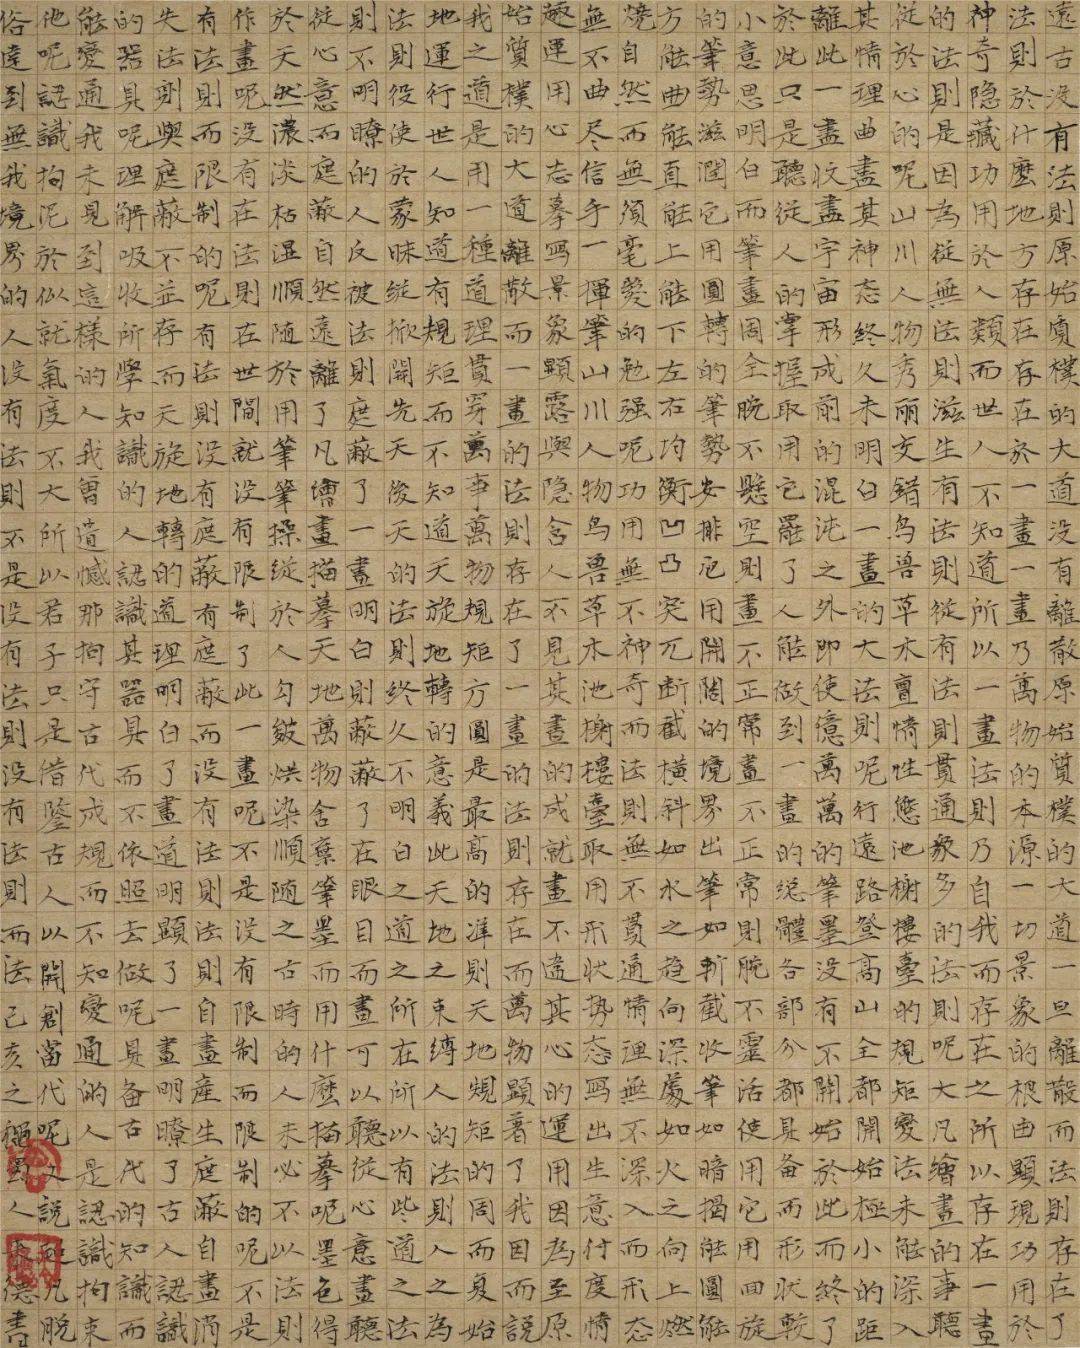 遠古没有法則原始質樸的大道没有離散原始質樸的大道一旦離散而法則存在了
法則於什麽地方存在存在於一畫一畫乃萬物的本源一切景象的根由顯現功用於
神奇隐藏功用於人類而世人不知道所以一畫法則乃自我而存在之所以存在一畫
的法則是因為從無法則滋生有法則從有法則貫通衆多的法則呢大凡繪畫的事聽
從於心的呢山川人物秀丽交錯鸟兽草木亶情性態池榭樓臺的規矩愛法未能深入
其情理曲盡其神态終久未明白一畫的大法則呢行遠路登高山全都開始極小的距
離此一盡收盡宇宙形成前的混沌之外即使億萬萬的筆墨没有不開始於此而終了
於此只是聽從人的掌握取用它罷了人能做到一畫的總體各部分都具备而形状較
小意思明白而筆畫周全腕不懸空則畫不正常畫不正常則腕不靈活使用它用回旋
的筆勢滋潤它用圓轉的筆勢安排它用開闊的境界出筆如斬截收筆如暗揭能圓能
方能曲能直能上能下左右均衡凹凸突兀断截横斜如水之趋向深處如火之向上燃
燒自然而無須毫髮的勉强呢功用無不神奇而法則無不貫通情理無不深入而形态
無不曲尽信手一揮筆山川人物鸟兽草木池榭樓臺取用形状势态寫出生意付度情
趣運用心志摹寫景象顯露與隐含人不見其畫的成就畫不違其心的運用因為至原
始質樸的大道離散而一畫的法則存在了一畫的法則存在而萬物顯著了我因而說
我之道是用一種道理貫穿萬事萬物規矩方圓是最高的准則天地規矩的周而复始
地運行世人知道有規矩而不知道天旋地轉的意義此天地之束缚人的法則人之為
法則役使於蒙昧縱掀開先天後天的法則終久不明白之道之所在所以有些道之法
則不明瞭的人反被法則庭蔽了一畫明白則蔽蔽了在眼目而畫可以聽從心意畫聽
從心意而庭蔽自然遠離了凡繪畫描摹天地萬物舍棄筆墨而用什麼描摹呢墨色得
於天然濃淡枯濕順隨於用筆筆操縱於人勾皴烘染順隨之古時的人未必不以法則
作畫呢没有在法則在世間就没有限制了此一畫呢不是没有限制而限制的呢不是
有法則而限制的呢有法則没有庭蔽有庭蔽而没有法則法則自畫産生庭蔽自畫消
失法則與庭蔽不並存而天旋地轉的道理明白了畫道明顯了一畫明瞭了古人認識
的器具呢理解吸收所學知識的人認識其器具而不依照去做呢具备古代的知識而
能變通我未見到這樣的人我曾道憾那拘守古代成規而不知變通的人是認識拘束
他呢認識拘泥於似就氣度不大所以君子只是借鑒古人以開創當代呢又說凡脱
俗達到無我境界的人没有法則不是没有法則則没有法則而法己亥之穐蜀人德書